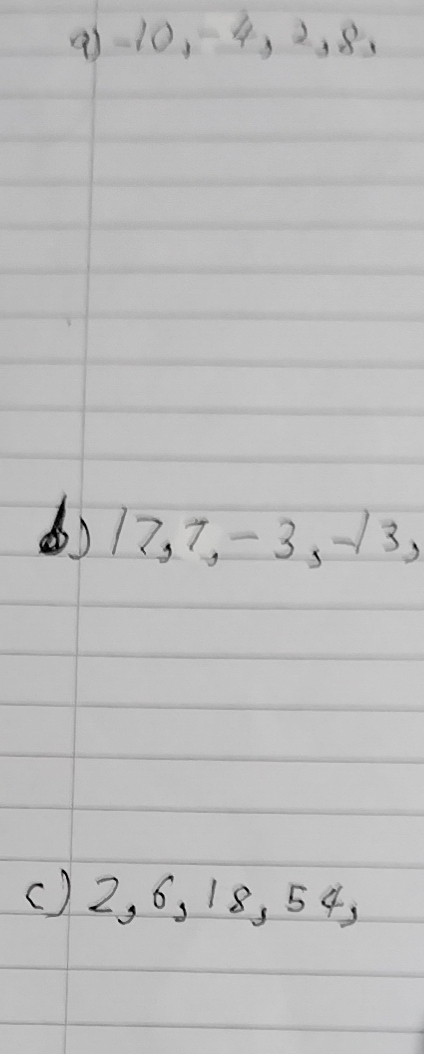 a) -10, -4, 2, 8,
b) 17, 7, -3, -13,
c) 2, 6, 18, 54,